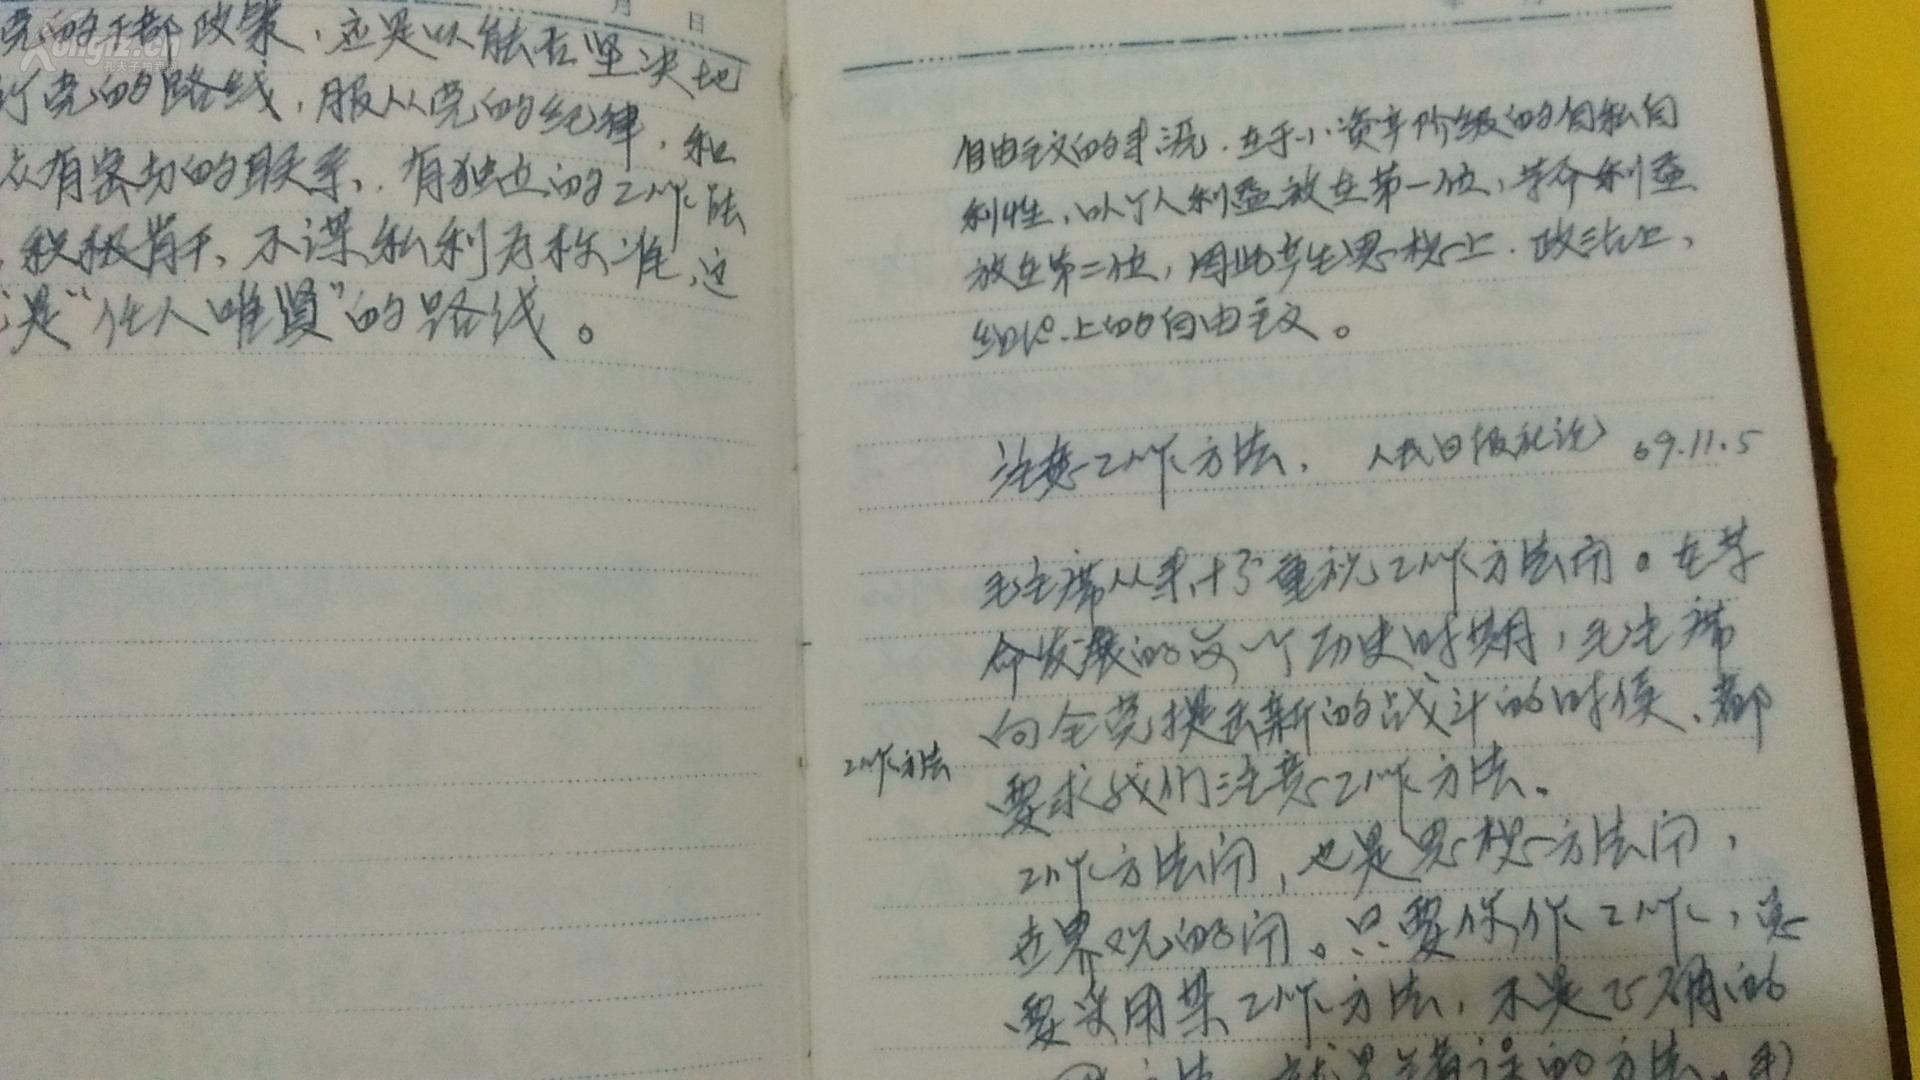 月 日
党的干部政策，应是以能否坚决地
行党的路线，服从党的纪律，和
众有密切的联系，有独立的工作能
积极肯干，不谋私利为标准，这
是“任人唯贤”的路线。
自由主义的来源，在于小资产阶级的自私自
利性，以个人利益放在第一位，革命利益
放在第二位，因此产生思想上、政治上、
组织上的自由主义。
注意工作方法， 人民日报社论 69.11.5
毛主席从来十分重视工作方法问。在革
命发展的每一个历史时期，毛主席
向全党提出新的战斗的时候、都
要求我们注意工作方法。
工作方法
工作方法问，也是思想方法问，
世界观的问。只要你作工作，总
要采用某工作方法，不是正确的
方法，就是错误的方法。